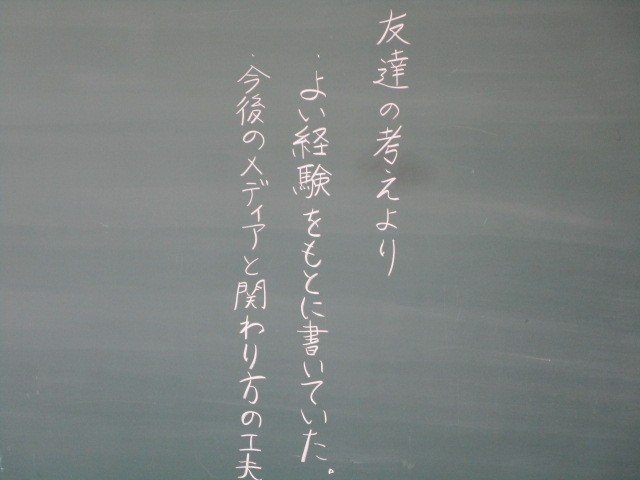 友達の考えより
・よい経験をもとに書いていた。
・今後のメディアと関わり方の工夫